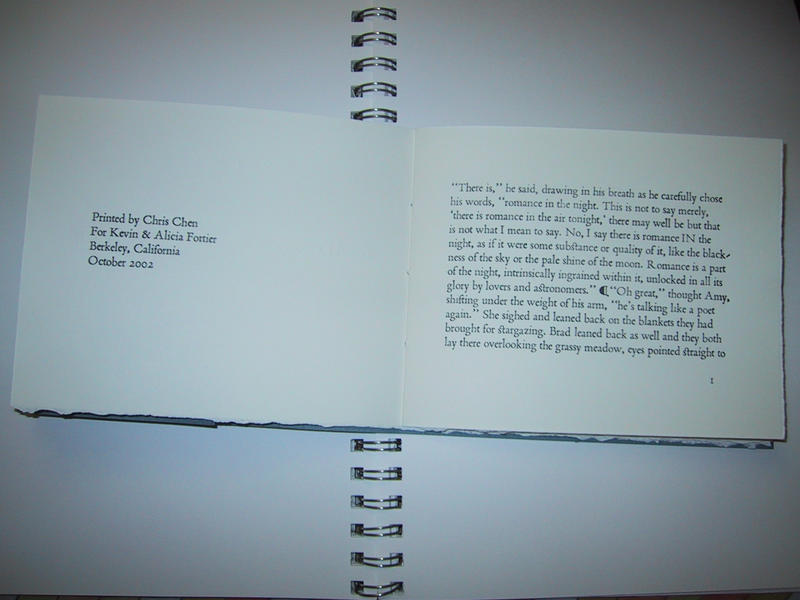 Printed by Chris Chen
For Kevin & Alicia Fortier
Berkeley, California
October 2002
“There is,” he said, drawing in his breath as he carefully chose
his words, “romance in the night. This is not to say merely,
‘there is romance in the air tonight,’ there may well be but that
is not what I mean to say. No, I say there is romance IN the
night, as if it were some substance or quality of it, like the black-
ness of the sky or the pale shine of the moon. Romance is a part
of the night, intrinsically ingrained within it, unlocked in all its
glory by lovers and astronomers.” ¶ “Oh great,” thought Amy,
shifting under the weight of his arm, “he’s talking like a poet
again.” She sighed and leaned back on the blankets they had
brought for stargazing. Brad leaned back as well and they both
lay there overlooking the grassy meadow, eyes pointed straight to
1